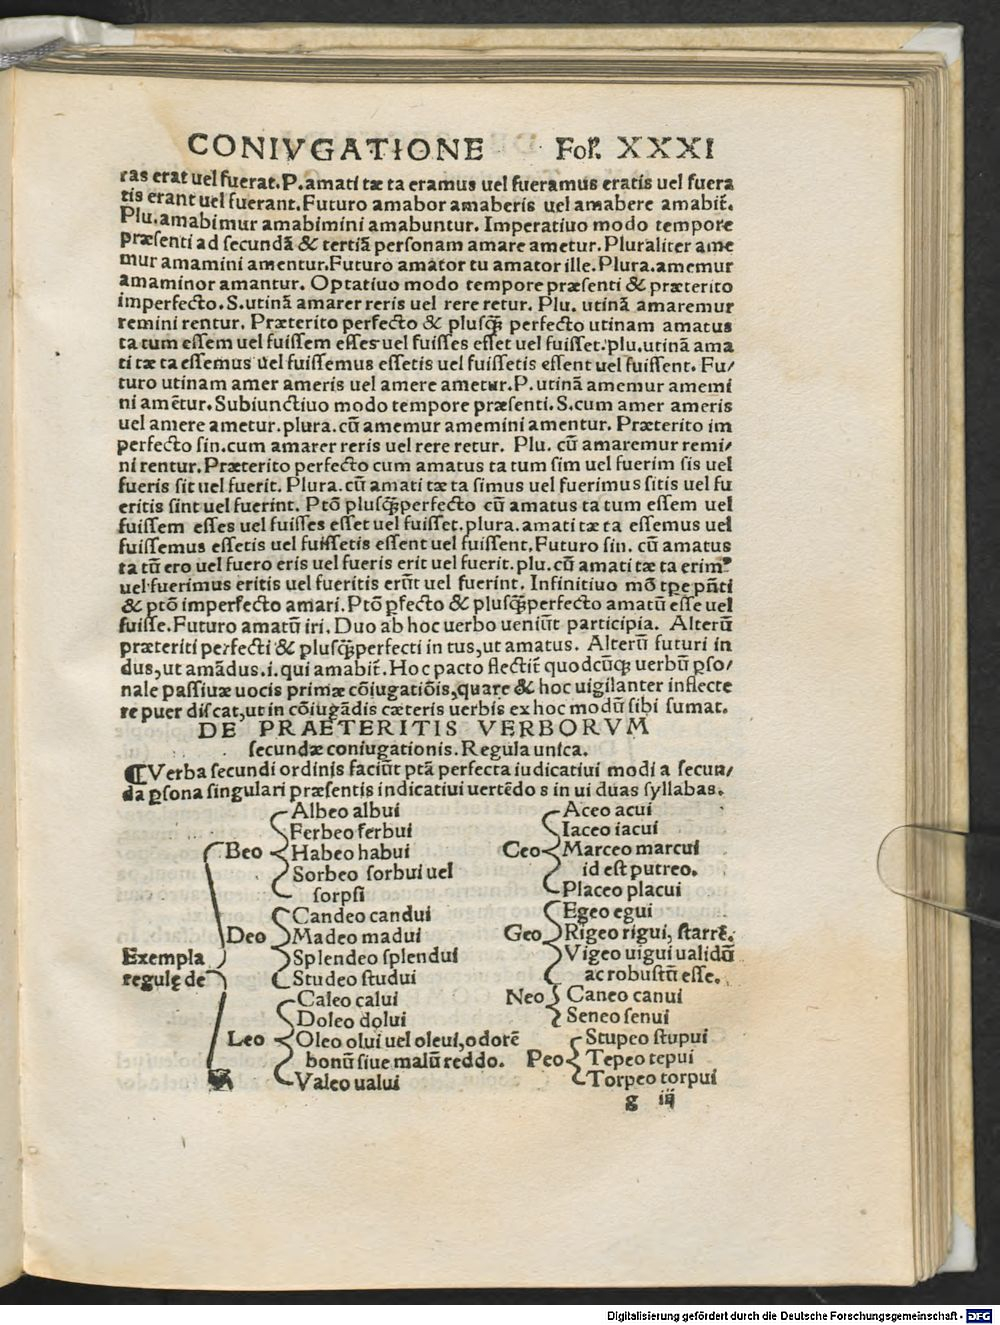 CONIVGATIONE Fol. XXXI
ras erat uel fuerat. P. amati tæ ta eramus uel fueramus eratis uel fuera
tis erant uel fuerant. Futuro amabor amaberis uel amabere amabit᷑.
Plu. amabimur amabimini amabuntur. Imperatiuo modo tempore
præsenti ad secundā & tertiā personam amare ametur. Pluraliter ame
mur amamini amentur. Futuro amator tu amator ille. Plura. amemur
amaminor amantur. Optatiuo modo tempore præsenti & præterito
imperfecto. S. utinā amarer reris uel rere retur. Plu. utinā amaremur
remini rentur. Præterito perfecto & plusq̄ꝫ perfecto utinam amatus
ta tum essem uel fuissem esses uel fuisses esset uel fuisset. plu. utinā ama
ti tæ ta essemus uel fuissemus essetis uel fuissetis essent uel fuissent. Fu/
turo utinam amer ameris uel amere ametur. P. utinā amemur amemi
ni amētur. Subiunctiuo modo tempore præsenti. S. cum amer ameris
uel amere ametur. plura. cū amemur amemini amentur. Præterito im
perfecto sin. cum amarer reris uel rere retur. Plu. cū amaremur remi/
ni rentur. Præterito perfecto cum amatus ta tum sim uel fuerim sis uel
fueris sit uel fuerit. Plura. cū amati tæ ta simus uel fuerimus sitis uel fu
eritis sint uel fuerint. Ptō plusq̄ꝫperfecto cū amatus ta tum essem uel
fuissem esses uel fuisses esset uel fuisset. plura. amati tæ ta essemus uel
fuissemus essetis uel fuissetis essent uel fuissent. Futuro sin. cū amatus
ta tū ero uel fuero eris uel fueris erit uel fuerit. plu. cū amati tæ ta erimꝰ
uel fuerimus eritis uel fueritis erūt uel fuerint. Infinitiuo mō tꝑe pn̄ti
& ptō imperfecto amari. Ptō ꝑfecto & plusq̄ꝫperfecto amatū esse uel
fuisse. Futuro amatū iri. Duo ab hoc uerbo ueniūt participia. Alterū
præteriti perfecti & plusq̄ꝫperfecti in tus, ut amatus. Alterū futuri in
dus, ut amādus. i. qui amabit᷑. Hoc pacto flectit᷑ quodcūqꝫ uerbū ꝑso/
nale passiuæ uocis primæ cōiugatiōis, quare & hoc uigilanter inflecte
re puer discat, ut in cōiugādis cæteris uerbis ex hoc modū sibi sumat.
DE PRAETERITIS VERBORVM
secundæ coniugationis. Regula unica.
¶ Verba secundi ordinis faciūt ptā perfecta iudicatiui modi a secun/
da ꝑsona singulari præsentis indicatiui uertēdo s in ui duas syllabas.
Exempla
regulę de
Beo
Albeo albui
Ferbeo ferbui
Habeo habui
Sorbeo sorbui uel
sorpsi
Deo
Candeo candui
Madeo madui
Splendeo splendui
Studeo studui
Leo
Caleo calui
Doleo dolui
Oleo olui uel oleui, odorē
bonū siue malū reddo.
Valeo ualui
Ceo
Aceo acui
Iaceo iacui
Marceo marcui
id est putreo.
Placeo placui
Geo
Egeo egui
Rigeo rigui, starrē.
Vigeo uigui ualidū
ac robustū esse.
Neo
Caneo canui
Seneo senui
Peo
Stupeo stupui
Tepeo tepui
Torpeo torpui
g iij
Digitalisierung gefördert durch die Deutsche Forschungsgemeinschaft - DFG